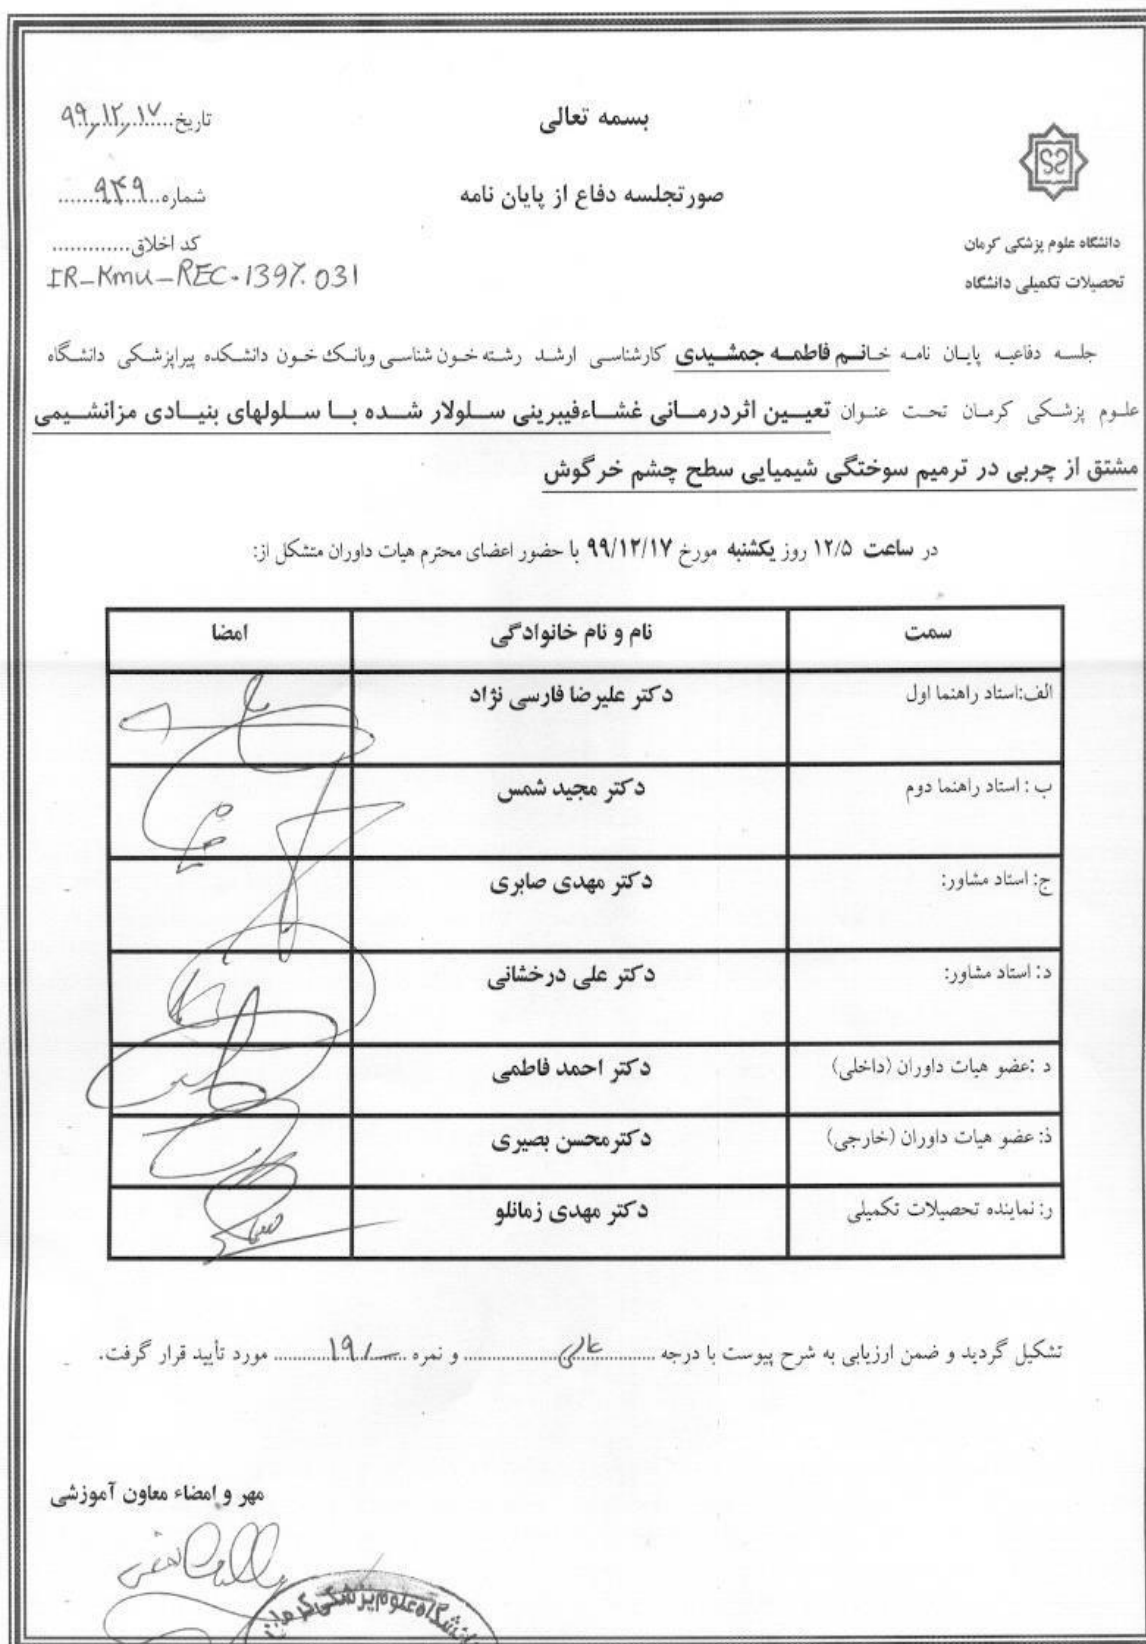 بسمه تعالی
صورتجلسه دفاع از پایان نامه
دانشگاه علوم پزشکی کرمان
تحصیلات تکمیلی دانشگاه
تاریخ ۹۹/۱۲/۱۷
شماره ۹۴۹
کد اخلاق.............
IR-Kmu-REC.1397.031
جلسه دفاعیه پایان نامه خانم فاطمه جمشیدی کارشناسی ارشد رشته خون شناسی وبانک خون دانشکده پیراپزشکی دانشگاه
علوم پزشکی کرمان تحت عنوان تعیین اثردرمانی غشاءفیبرینی سلولار شده با سلولهای بنیادی مزانشیمی
مشتق از چربی در ترمیم سوختگی شیمیایی سطح چشم خرگوش
در ساعت ۱۲/۵ روز یکشنبه مورخ ۹۹/۱۲/۱۷ با حضور اعضای محترم هیات داوران متشکل از:
سمت نام و نام خانوادگی امضا
الف:استاد راهنما اول دکتر علیرضا فارسی نژاد
ب : استاد راهنما دوم دکتر مجید شمس
ج: استاد مشاور: دکتر مهدی صابری
د: استاد مشاور: دکتر علی درخشانی
د :عضو هیات داوران (داخلی) دکتر احمد فاطمی
ذ: عضو هیات داوران (خارجی) دکترمحسن بصیری
ر: نماینده تحصیلات تکمیلی دکتر مهدی زمانلو
تشکیل گردید و ضمن ارزیابی به شرح پیوست با درجه عالی و نمره ۱۹/– مورد تأیید قرار گرفت.
مهر و امضاء معاون آموزشی
دانشگاه علوم پزشکی کرمان